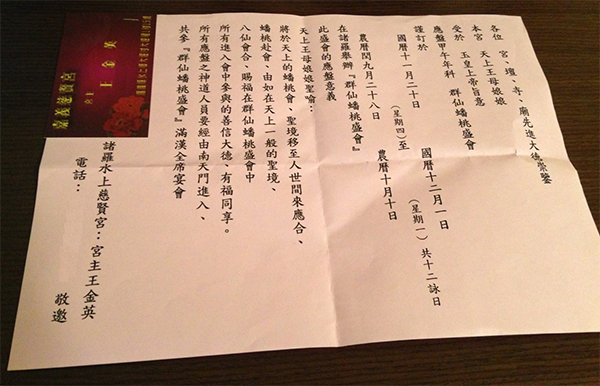 各位　宮、壇、寺、廟先進大德崇鑒
本宮　天上王母娘娘
受於　玉皇上帝旨意
應盤甲午年科　群仙蟠桃盛會
謹訂於
國曆十一月二十日（星期四）至　國曆十二月一日（星期一）共十二詠日
農曆閏九月二十八日　農曆十月十日
在諸羅舉辦『群仙蟠桃盛會』
此盛會的應盤意義
天上王母娘娘聖喻：
將於天上的蟠桃會、聖境移至人世間來應合、
蟠桃赴會、由如在天上一般的聖境、
八仙會合、賜福在群仙蟠桃盛會中
所有進入會中參與的善信大德、有福同享。
所有應盤之神道人員要經由南天門進入、
共參『群仙蟠桃盛會』滿漢全席宴會
諸羅水上慈賢宮：宮主王金英
電話：
敬邀
嘉義慈賢宮
宮主　王金英